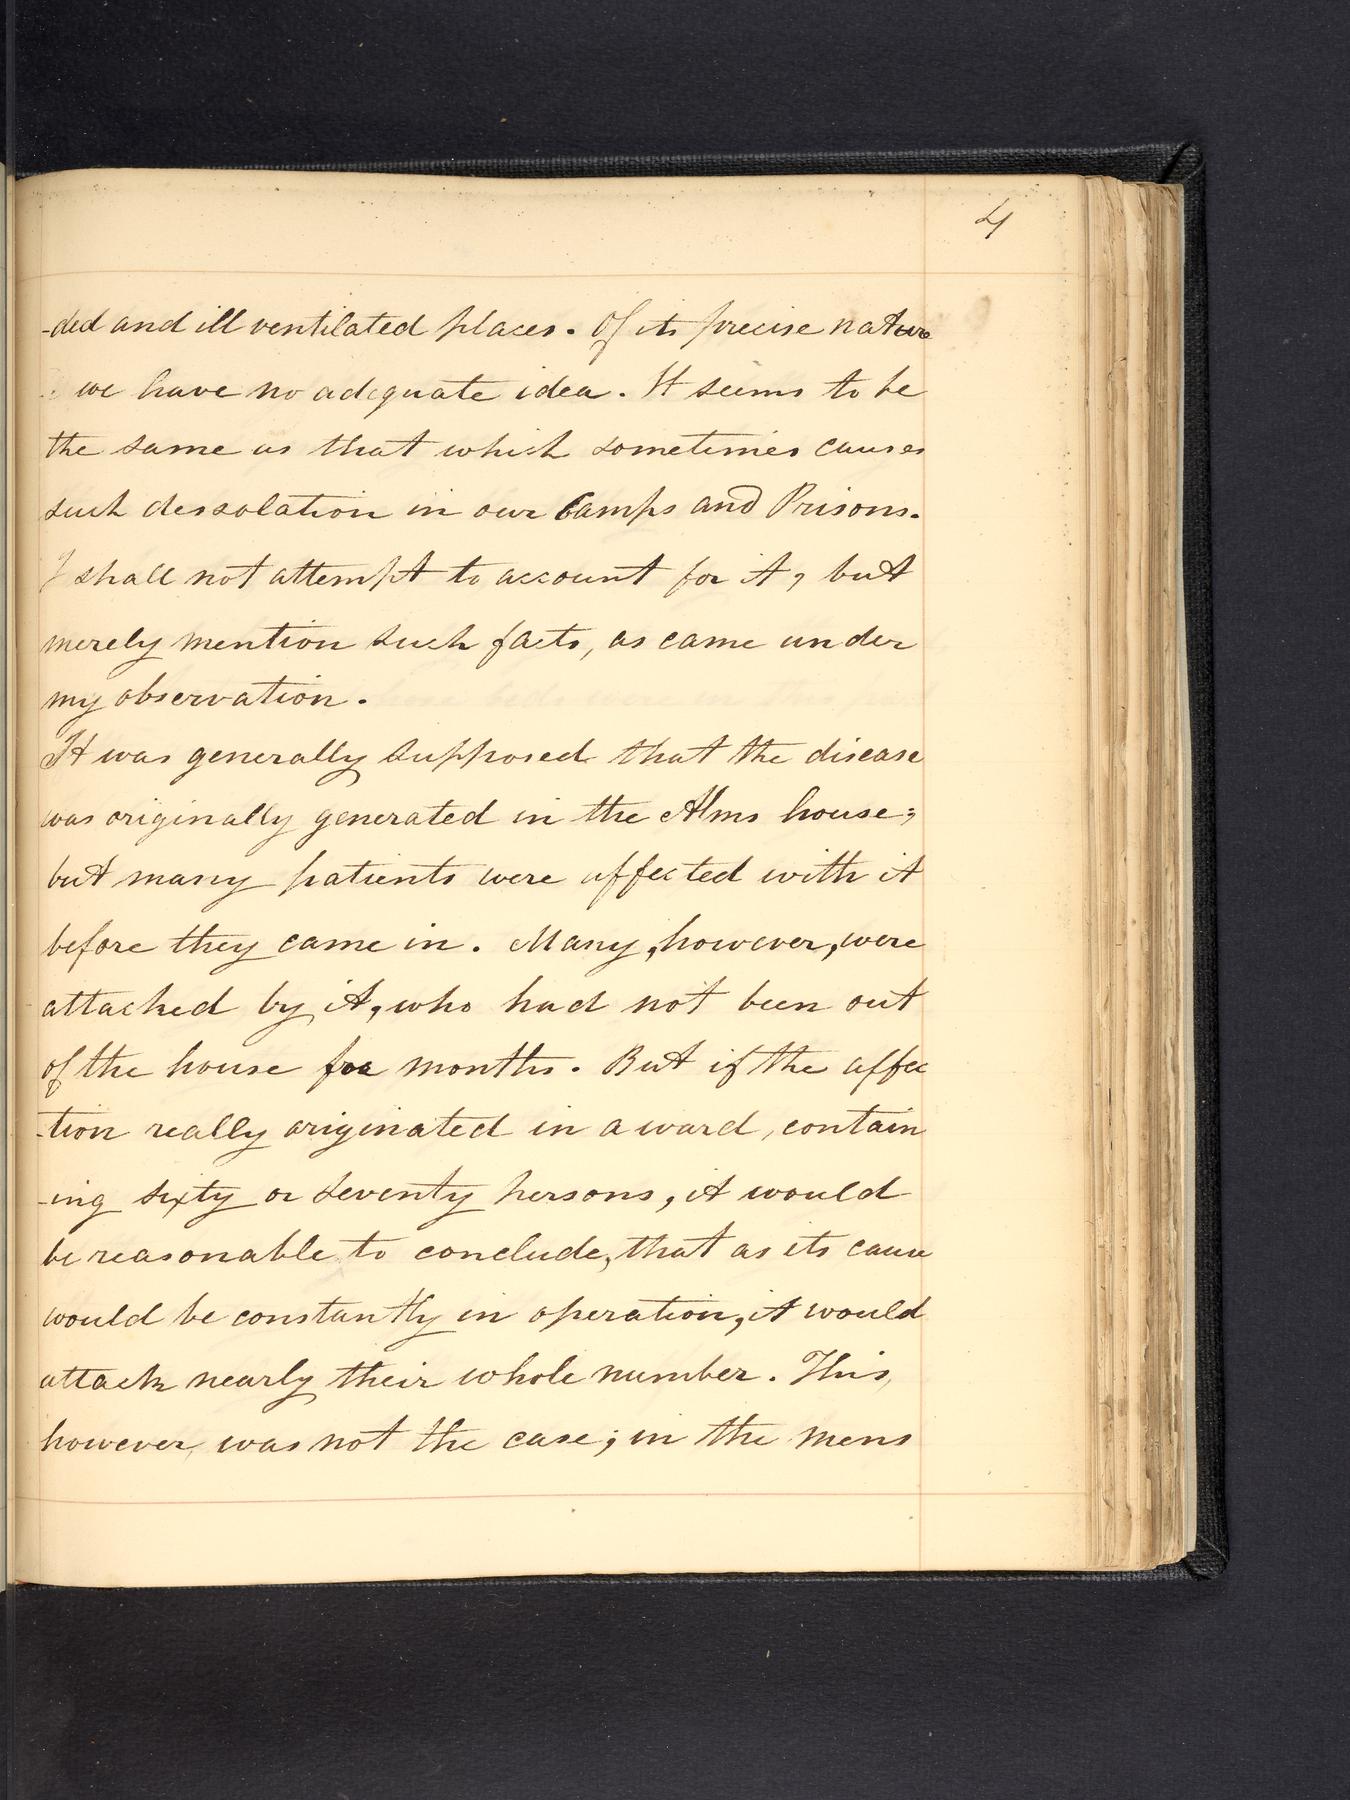 4
-ded and ill ventilated places. Of its precise nature
we have no adequate idea. It seems to be
the same as that which sometimes causes
such dessolation in our Camps and Prisons.
I shall not attempt to account for it, but
merely mention such facts, as came under
my observation.
It was generally supposed that the disease
was originally generated in the Alms house;
but many patients were affected with it
before they came in. Many, however, were
attacked by it, who had not been out
of the house for months. But if the affec
-tion really originated in a ward, contain
-ing sixty or seventy persons, it would
be reasonable to conclude, that as its cause
would be constantly in operation, it would
attack nearly their whole number. This,
however, was not the case; in the mens